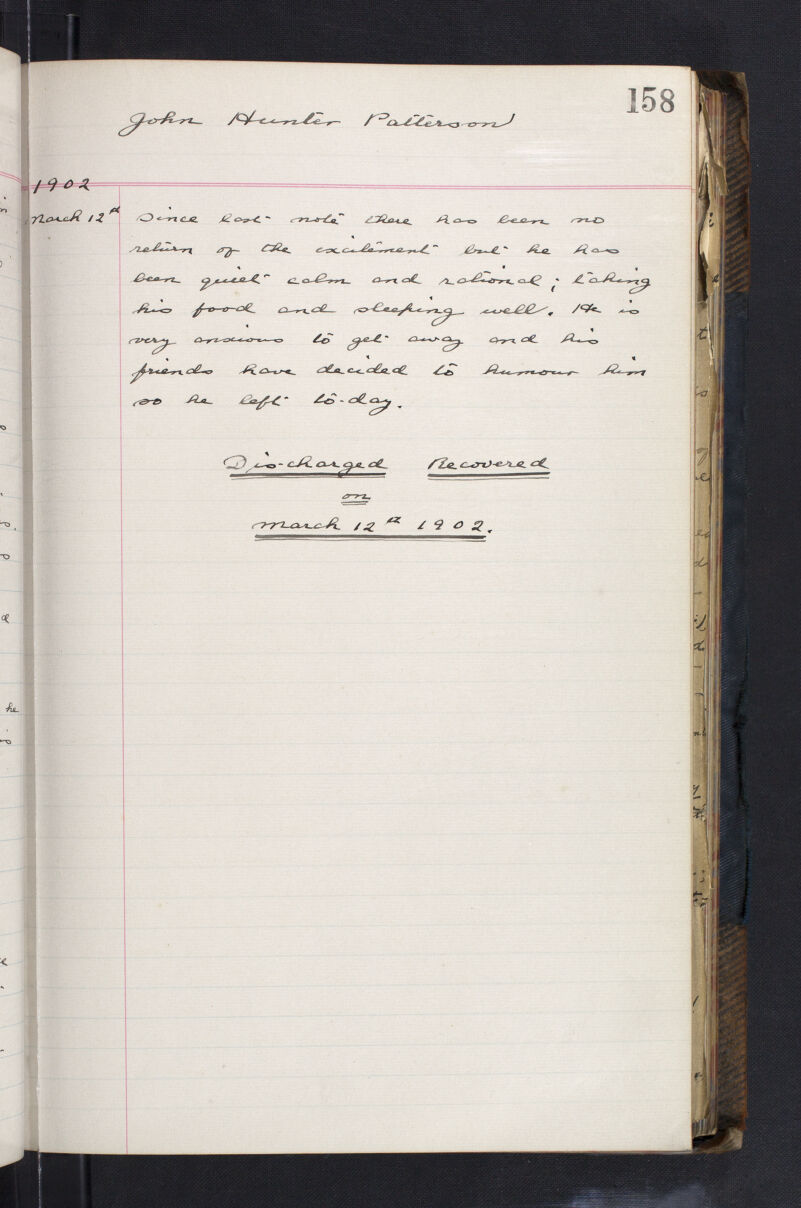 158
John Hunter Patterson
1902
March 12th Since last note there has been no
return of the excitement but he has
been quiet calm and rational; taking
his food and sleeping well. He is
very anxious to get away and his
friends have decided to humour him
so he left to-day.
Dis-charged Recovered
on
March 12th 1902.
he